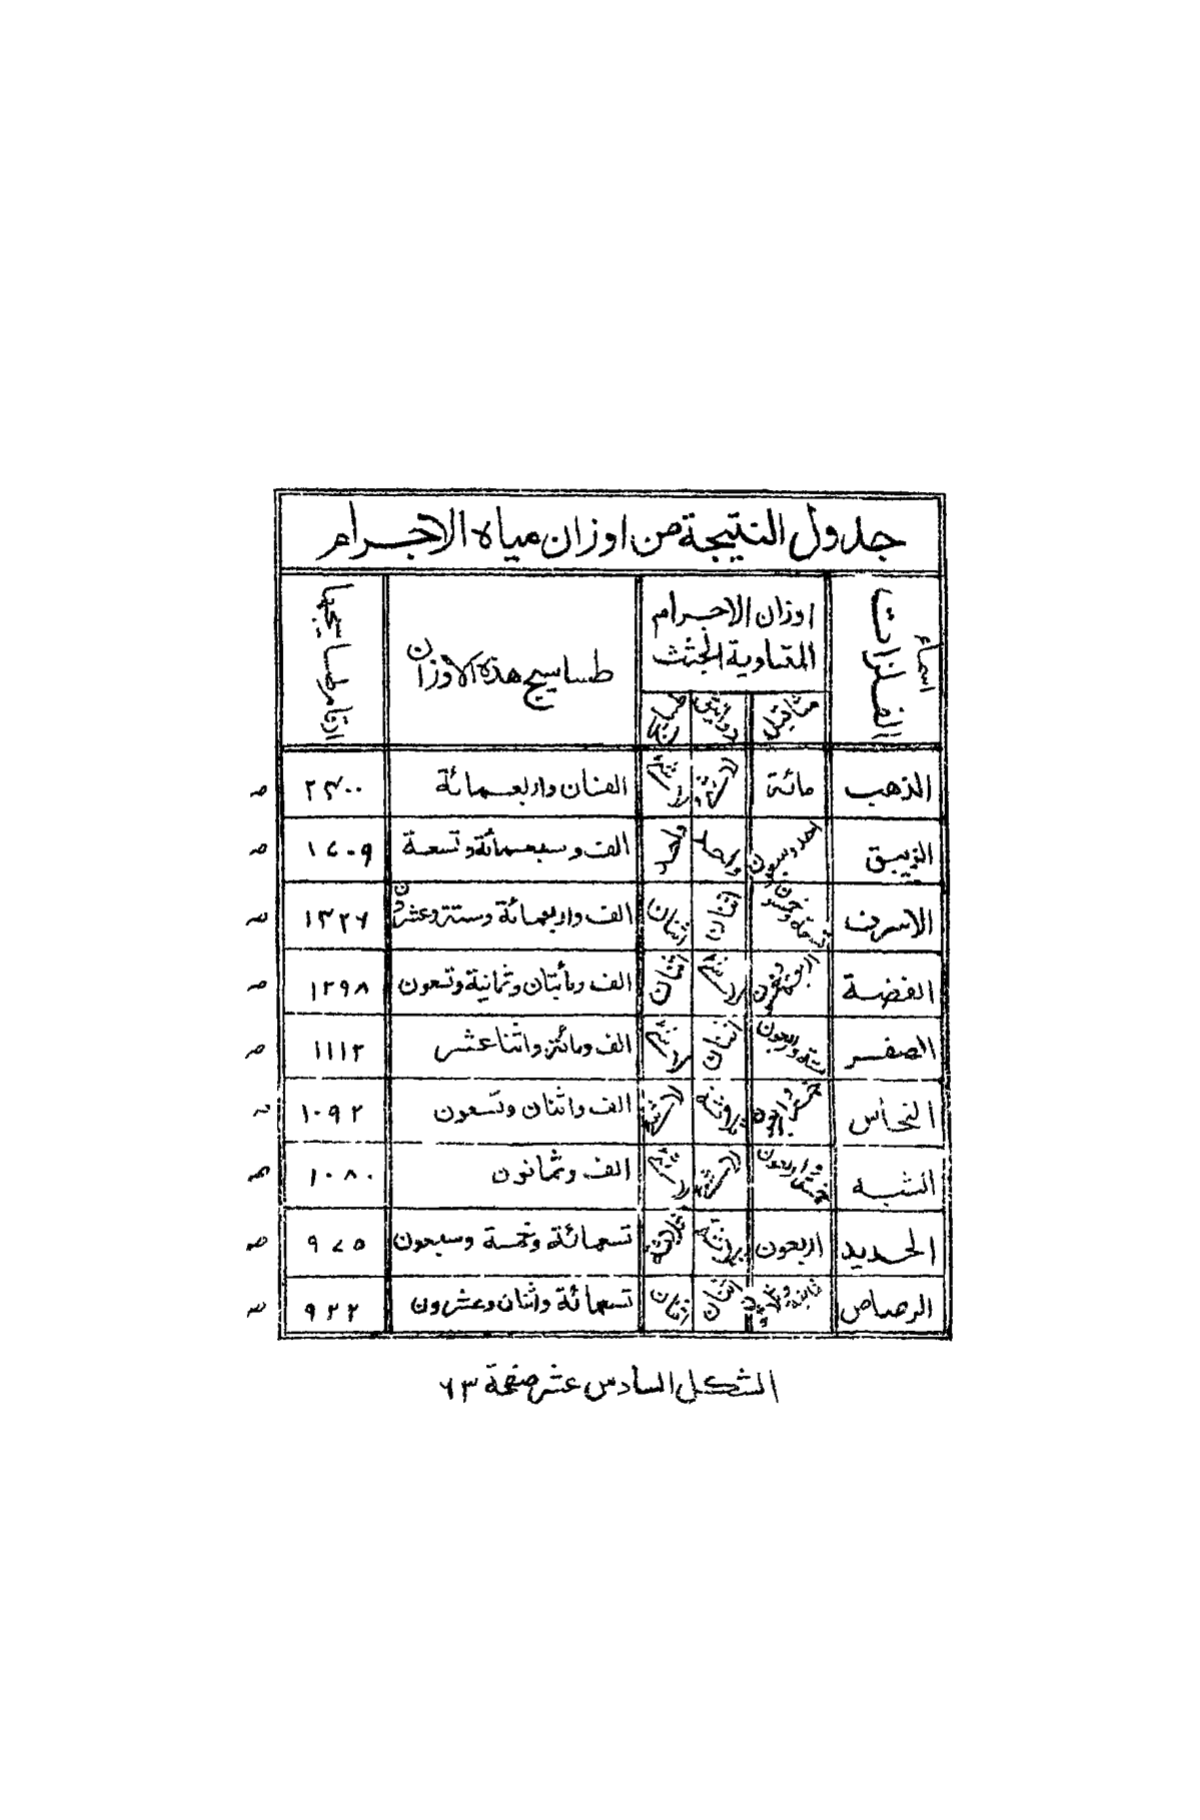 جدول النتيجة من اوزان مياه الاجرام
اسماء الفلزات
اوزان الاجرام المتساوية الجثث
مثاقيل دوانيق
طساسيج هذه الاوزان
ارقام طساسيجها
الذهب مائة لا شئ لا شئ الفان واربعمائة ٢٤٠٠ صه
الزيبق احد وسبعون واحد واحد الف وسبعمائة وتسعة ١٧٠٩ صه
الاسرف تسعة وخمسون اثنان اثنان الف واربعمائة وستة وعشرون ١٤٢٦ صه
الفضة لا شئ اثنان الف ومأيتان وثمانية وتسعون ١٢٩٨ صه
الصفر ستة واربعون اثنان لا شئ الف ومائة واثنا عشر ١١١٢ صه
النحاس خمسة واربعون ثلاثة لا شئ الف واثنان وتسعون ١٠٩٢
الشبه خمسة واربعون لا شئ لا شئ الف وثمانون ١٠٨٠ صه
الحديد اربعون ثلاثة تسعمائة وخمسة وسبعون ٩٧٥ صه
الرصاص ثمانية وثلاثون اثنان اثنان تسعمائة واثنان وعشرون ٩٢٢ صه
الشكل السادس عشر صفحة ٦٣